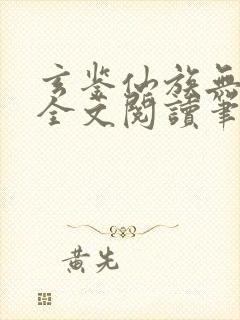 玄鉴仙族無
全文閱讀筆
黃先